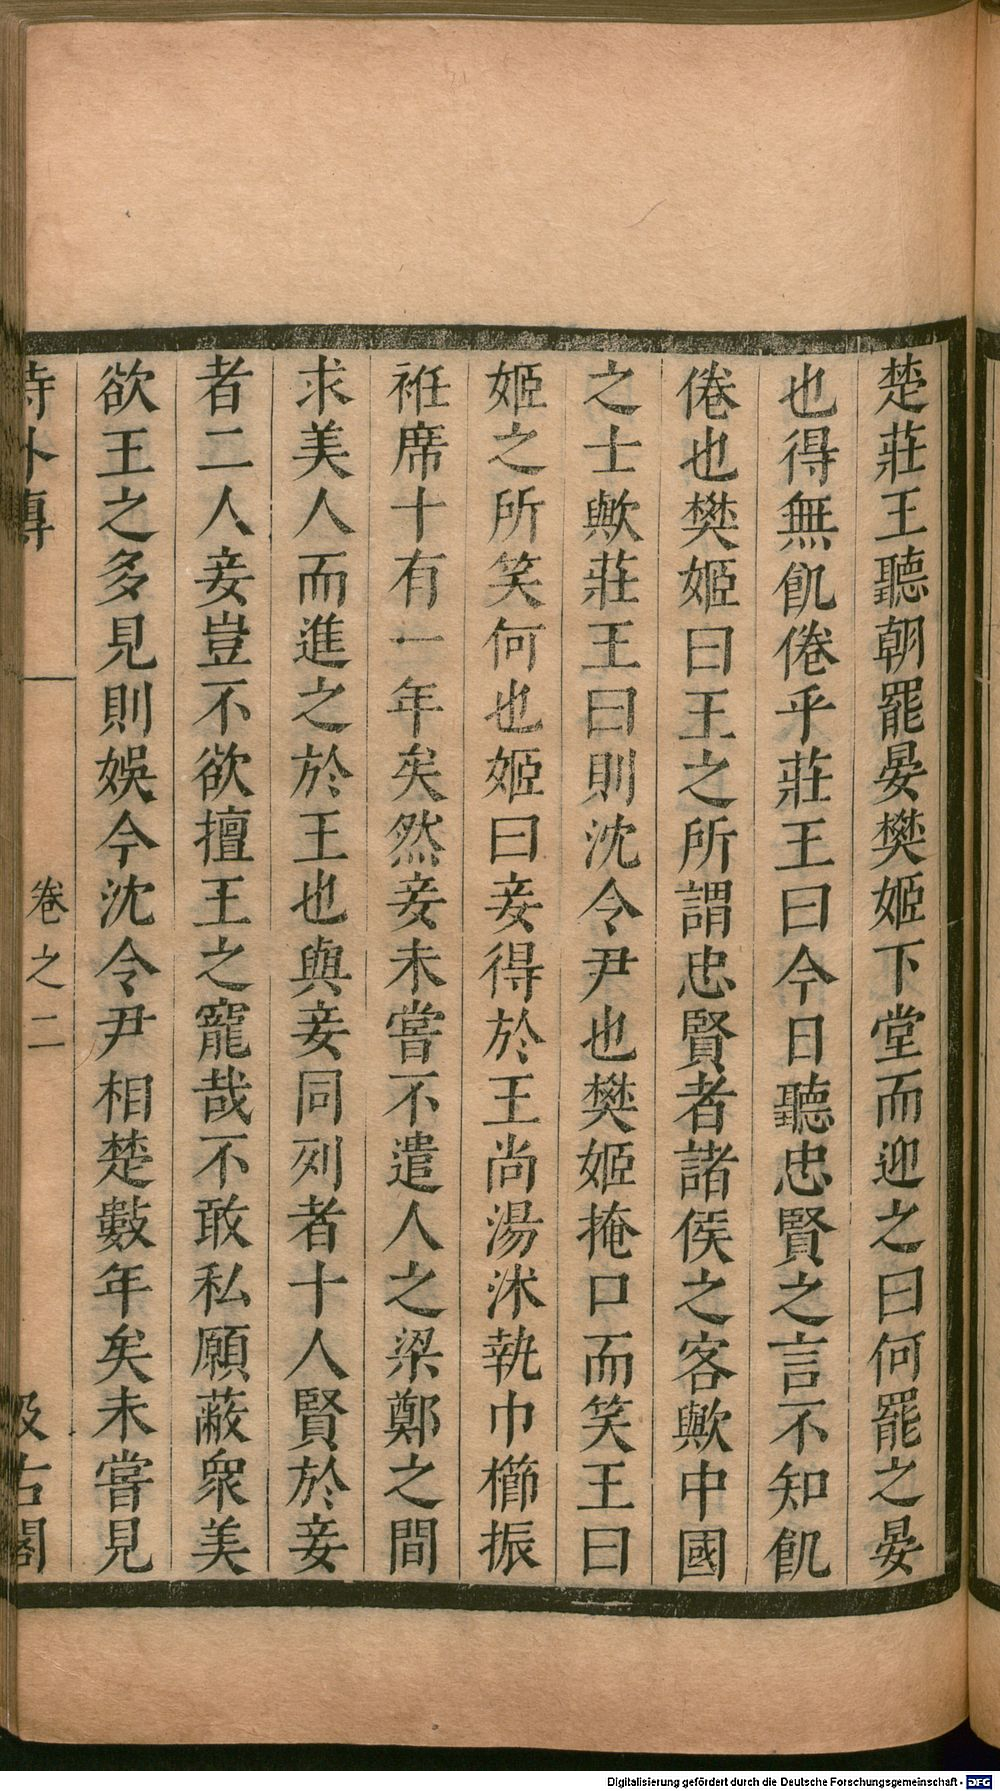 楚莊王聽朝罷晏樊姬下堂而迎之曰何罷之晏
也得無飢倦乎莊王曰今日聽忠賢之言不知飢
倦也樊姬曰王之所謂忠賢者諸侯之客歟中國
之士歟莊王曰則沈令尹也樊姬掩口而笑王曰
姬之所笑何也姬曰妾得於王尚湯沐執巾櫛振
袵席十有一年矣然妾未嘗不遣人之梁鄭之間
求美人而進之於王也與妾同列者十人賢於妾
者二人妾豈不欲擅王之寵哉不敢私願蔽衆美
欲王之多見則娛今沈令尹相楚數年矣未嘗見
詩外傳
卷之二
汲古閣
Digitalisierung gefördert durch die Deutsche Forschungsgemeinschaft - DFG